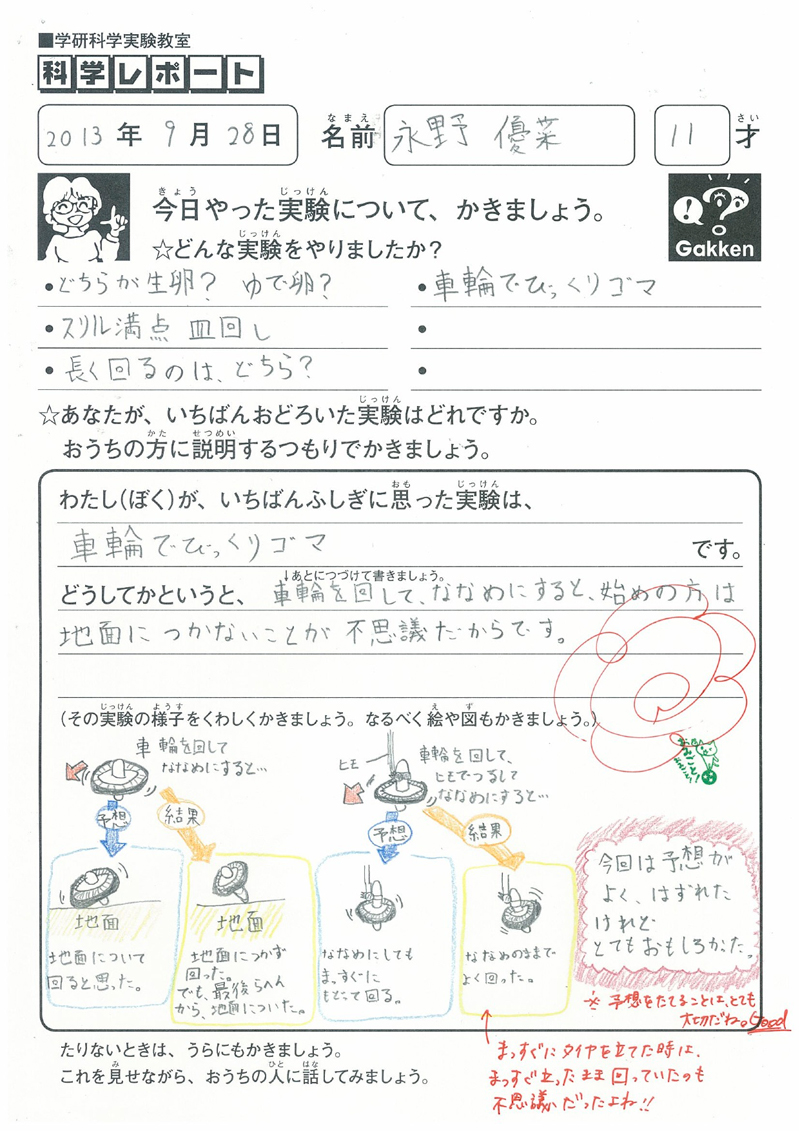 ■学研科学実験教室
科学レポート
2013年 9月 28日 名前 永野 優菜 11才
なまえ さい
きょう じっけん
今日やった実験について、かきましょう。
じっけん
☆どんな実験をやりましたか?
Gakken
•どちらが生卵? ゆで卵?
•車輪でびっくりゴマ
•スリル満点 皿回し
•
•長く回るのは、どちら?
•
じっけん
☆あなたが、いちばんおどろいた実験はどれですか。
かた せつめい
おうちの方に説明するつもりでかきましょう。
おも じっけん
わたし(ぼく)が、いちばんふしぎに思った実験は、
車輪でびっくりゴマ です。
↓あとにつづけて書きましょう。
どうしてかというと、車輪を回して、ななめにすると、始めの方は
地面につかないことが不思議だからです。
じっけん ようす え ず
(その実験の様子をくわしくかきましょう。なるべく絵や図もかきましょう。)
車輪を回して
ななめにすると…
予想
結果
地面
地面について
回ると思った。
地面
地面につかず
回った。
でも、最後らへん
から、地面についた。
ヒモ
車輪を回して、
ヒモでつるして
ななめにすると…
予想
結果
ななめにしても
まっすぐに
もどって回る。
ななめのままで
よく回った。
今回は予想が
よく、はずれた
けれど
とてもおもしろかった。
※ 予想をたてることは、とても
大切だね。Good
↑まっすぐにタイヤを立てた時は、
まっすぐ立ったまま回っていたのも
不思議だったよね!!
たりないときは、うらにもかきましょう。
み ひと はな
これを見せながら、おうちの人に話してみましょう。